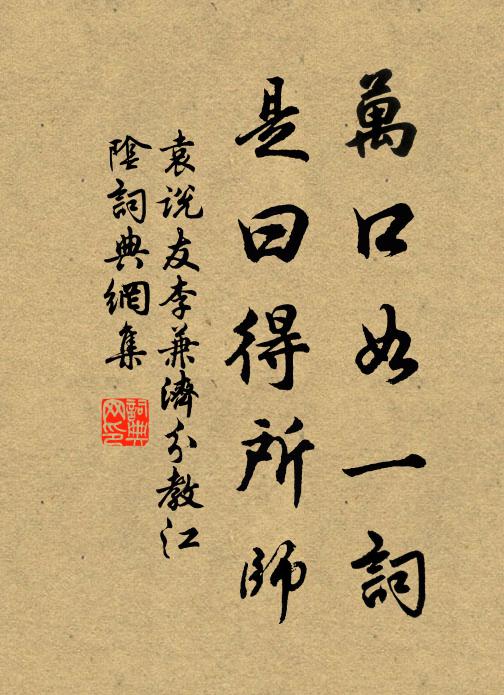 萬口如一詞
是曰得所師
袁说友李兼濟分教江
陰詞典網集
詞典
网印